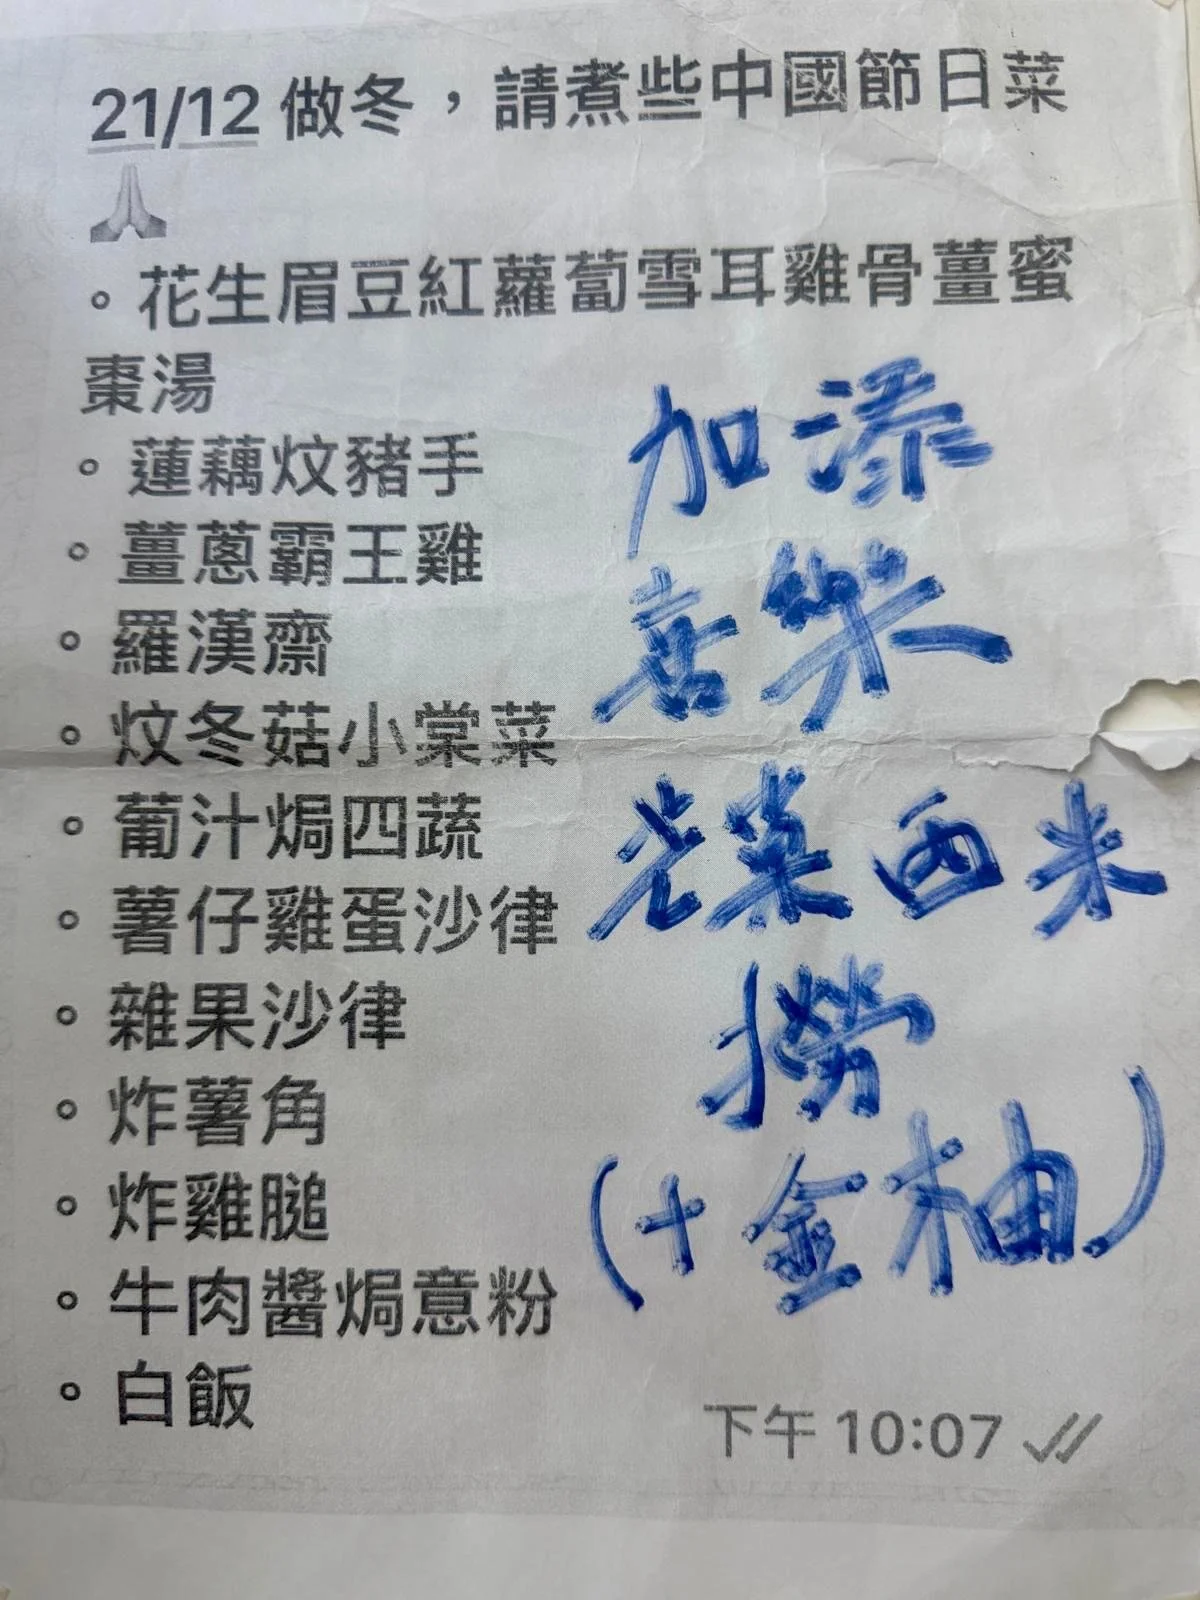 21/12 做冬，請煮些中國節日菜
🙏
◦ 花生眉豆紅蘿蔔雪耳雞骨薑蜜
棗湯
◦ 蓮藕炆豬手
◦ 薑蔥霸王雞
◦ 羅漢齋
◦ 炆冬菇小棠菜
◦ 葡汁焗四蔬
◦ 薯仔雞蛋沙律
◦ 雜果沙律
◦ 炸薯角
◦ 炸雞膇
◦ 牛肉醬焗意粉
◦ 白飯
下午 10:07
加添
喜樂
芒菓西米
撈
(+金柚)